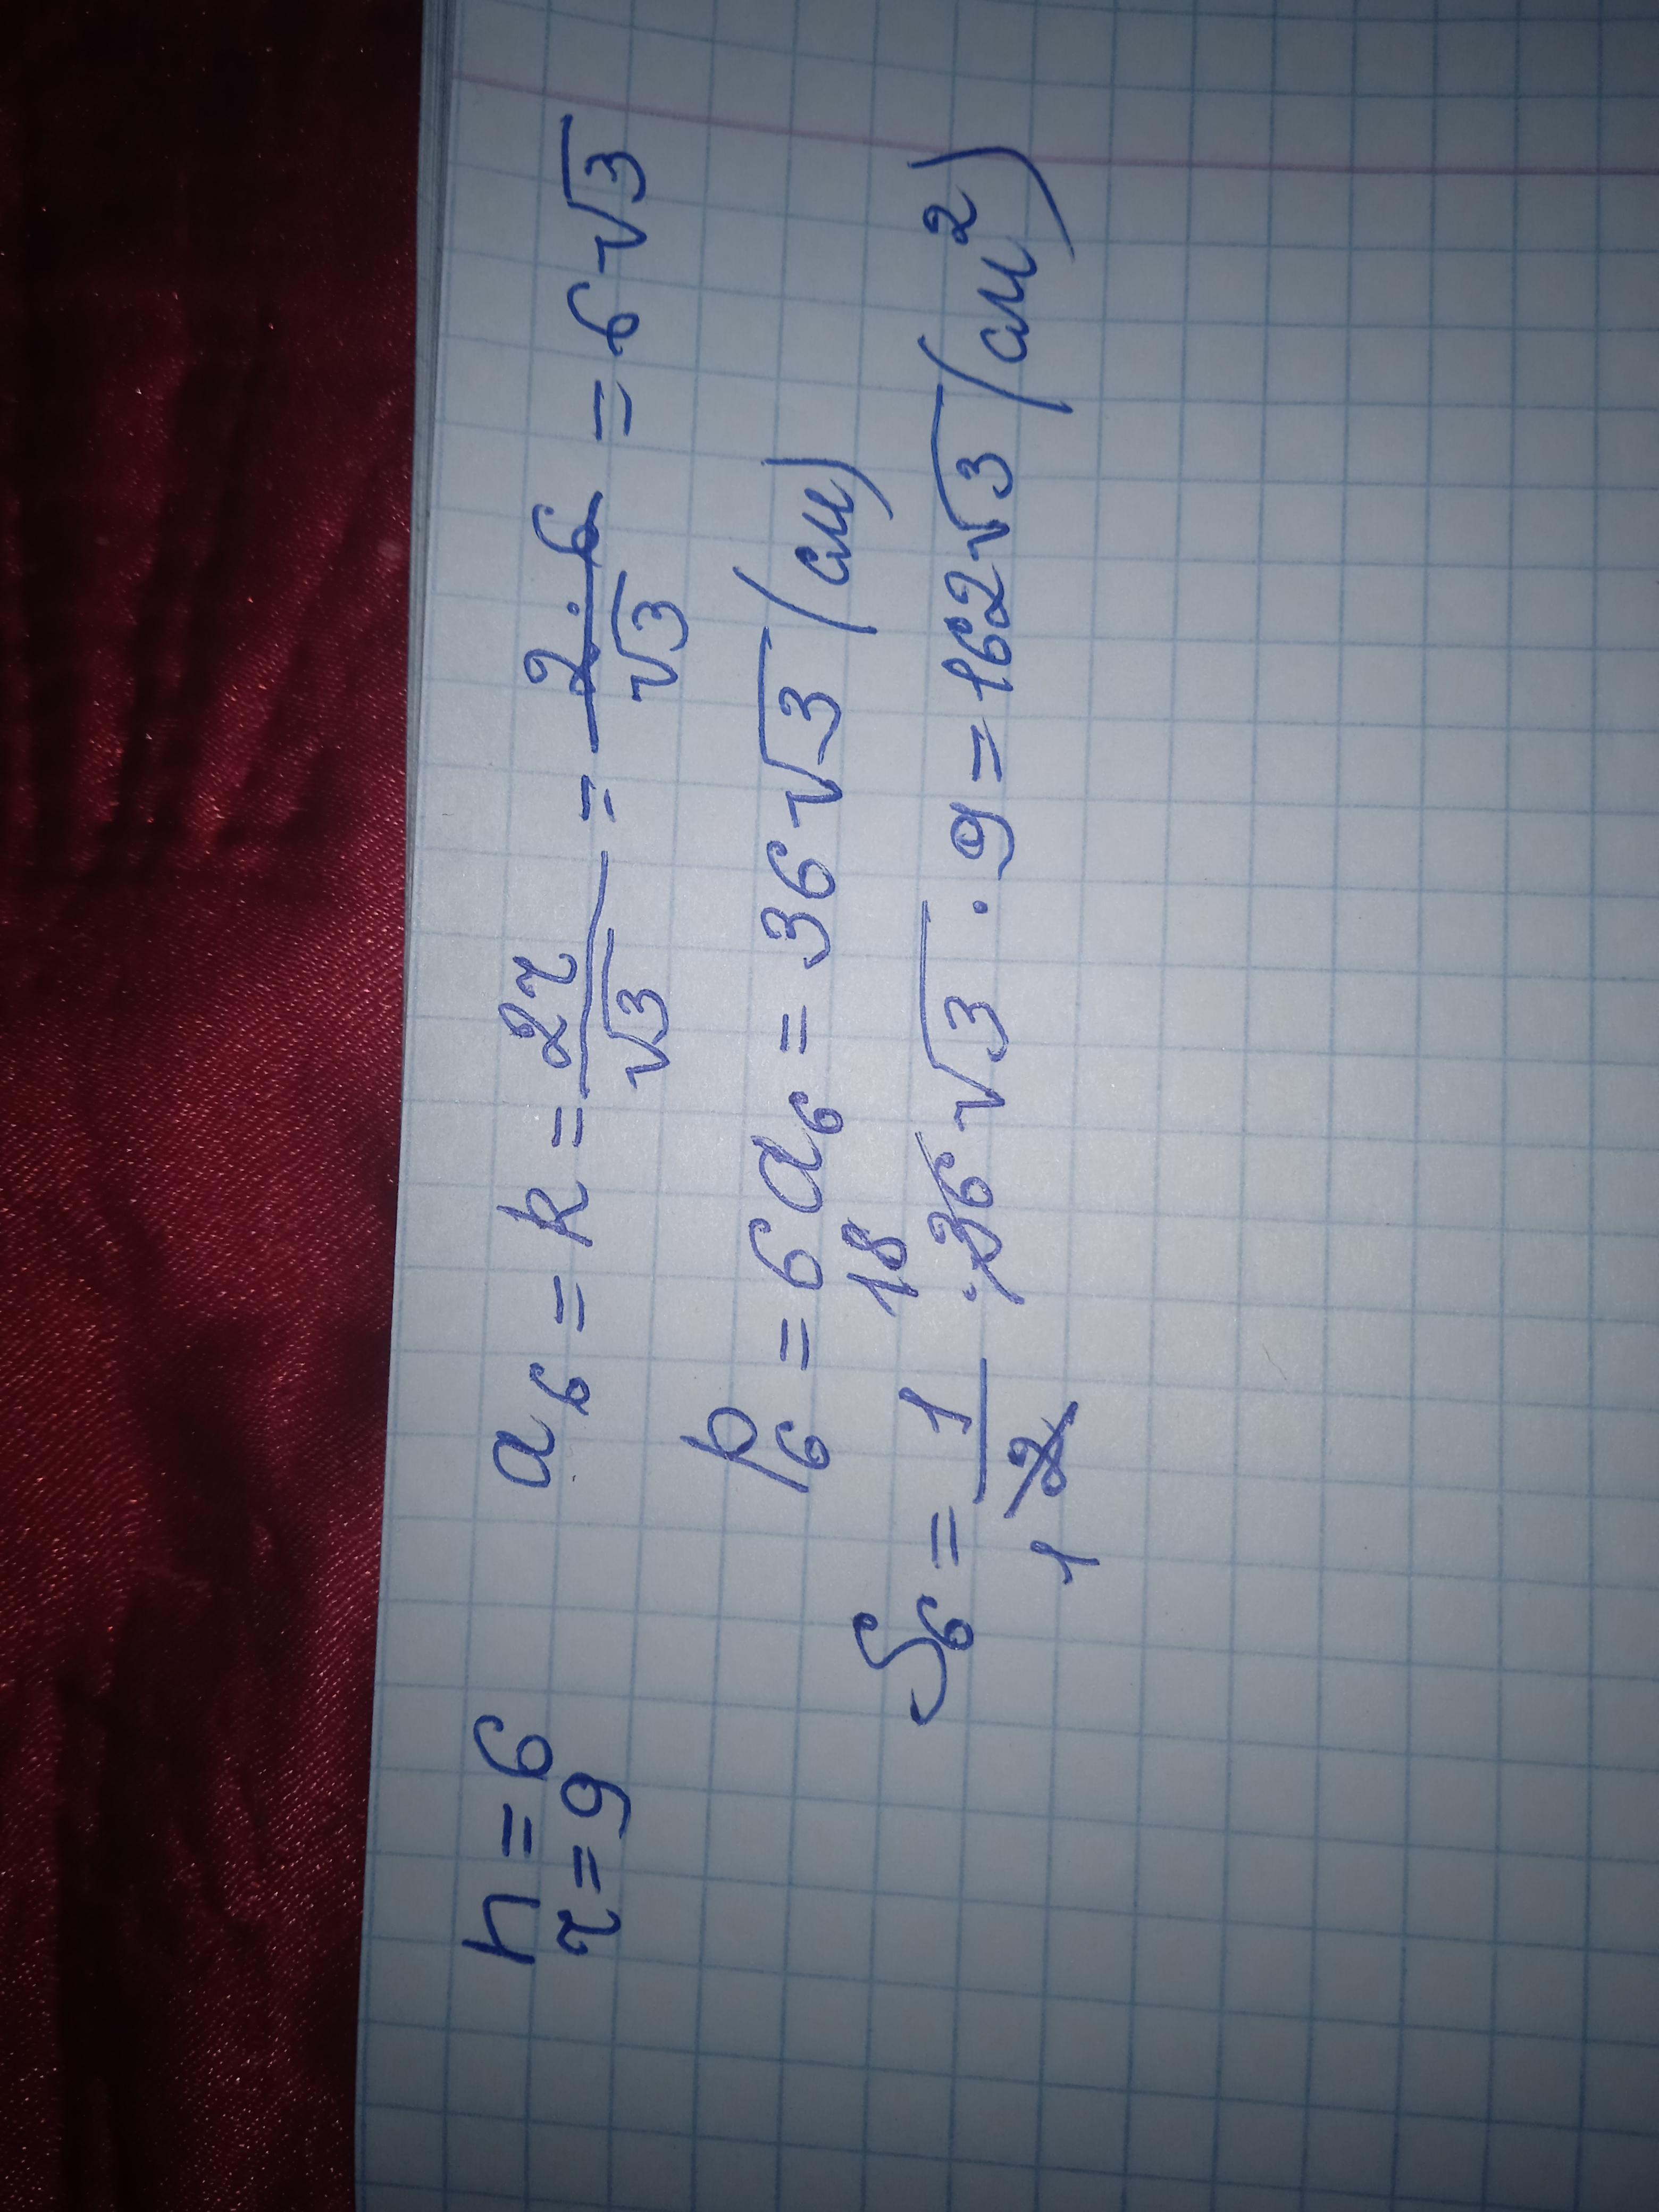 n = 6
r = 9
a₆ = R = 2r/√3 = 2·6/√3 = 6√3
P₆ = 6a₆ = 36√3 (см)
18
S₆ = 1/2 · 36√3 · 9 = 162√3 (см²)
1